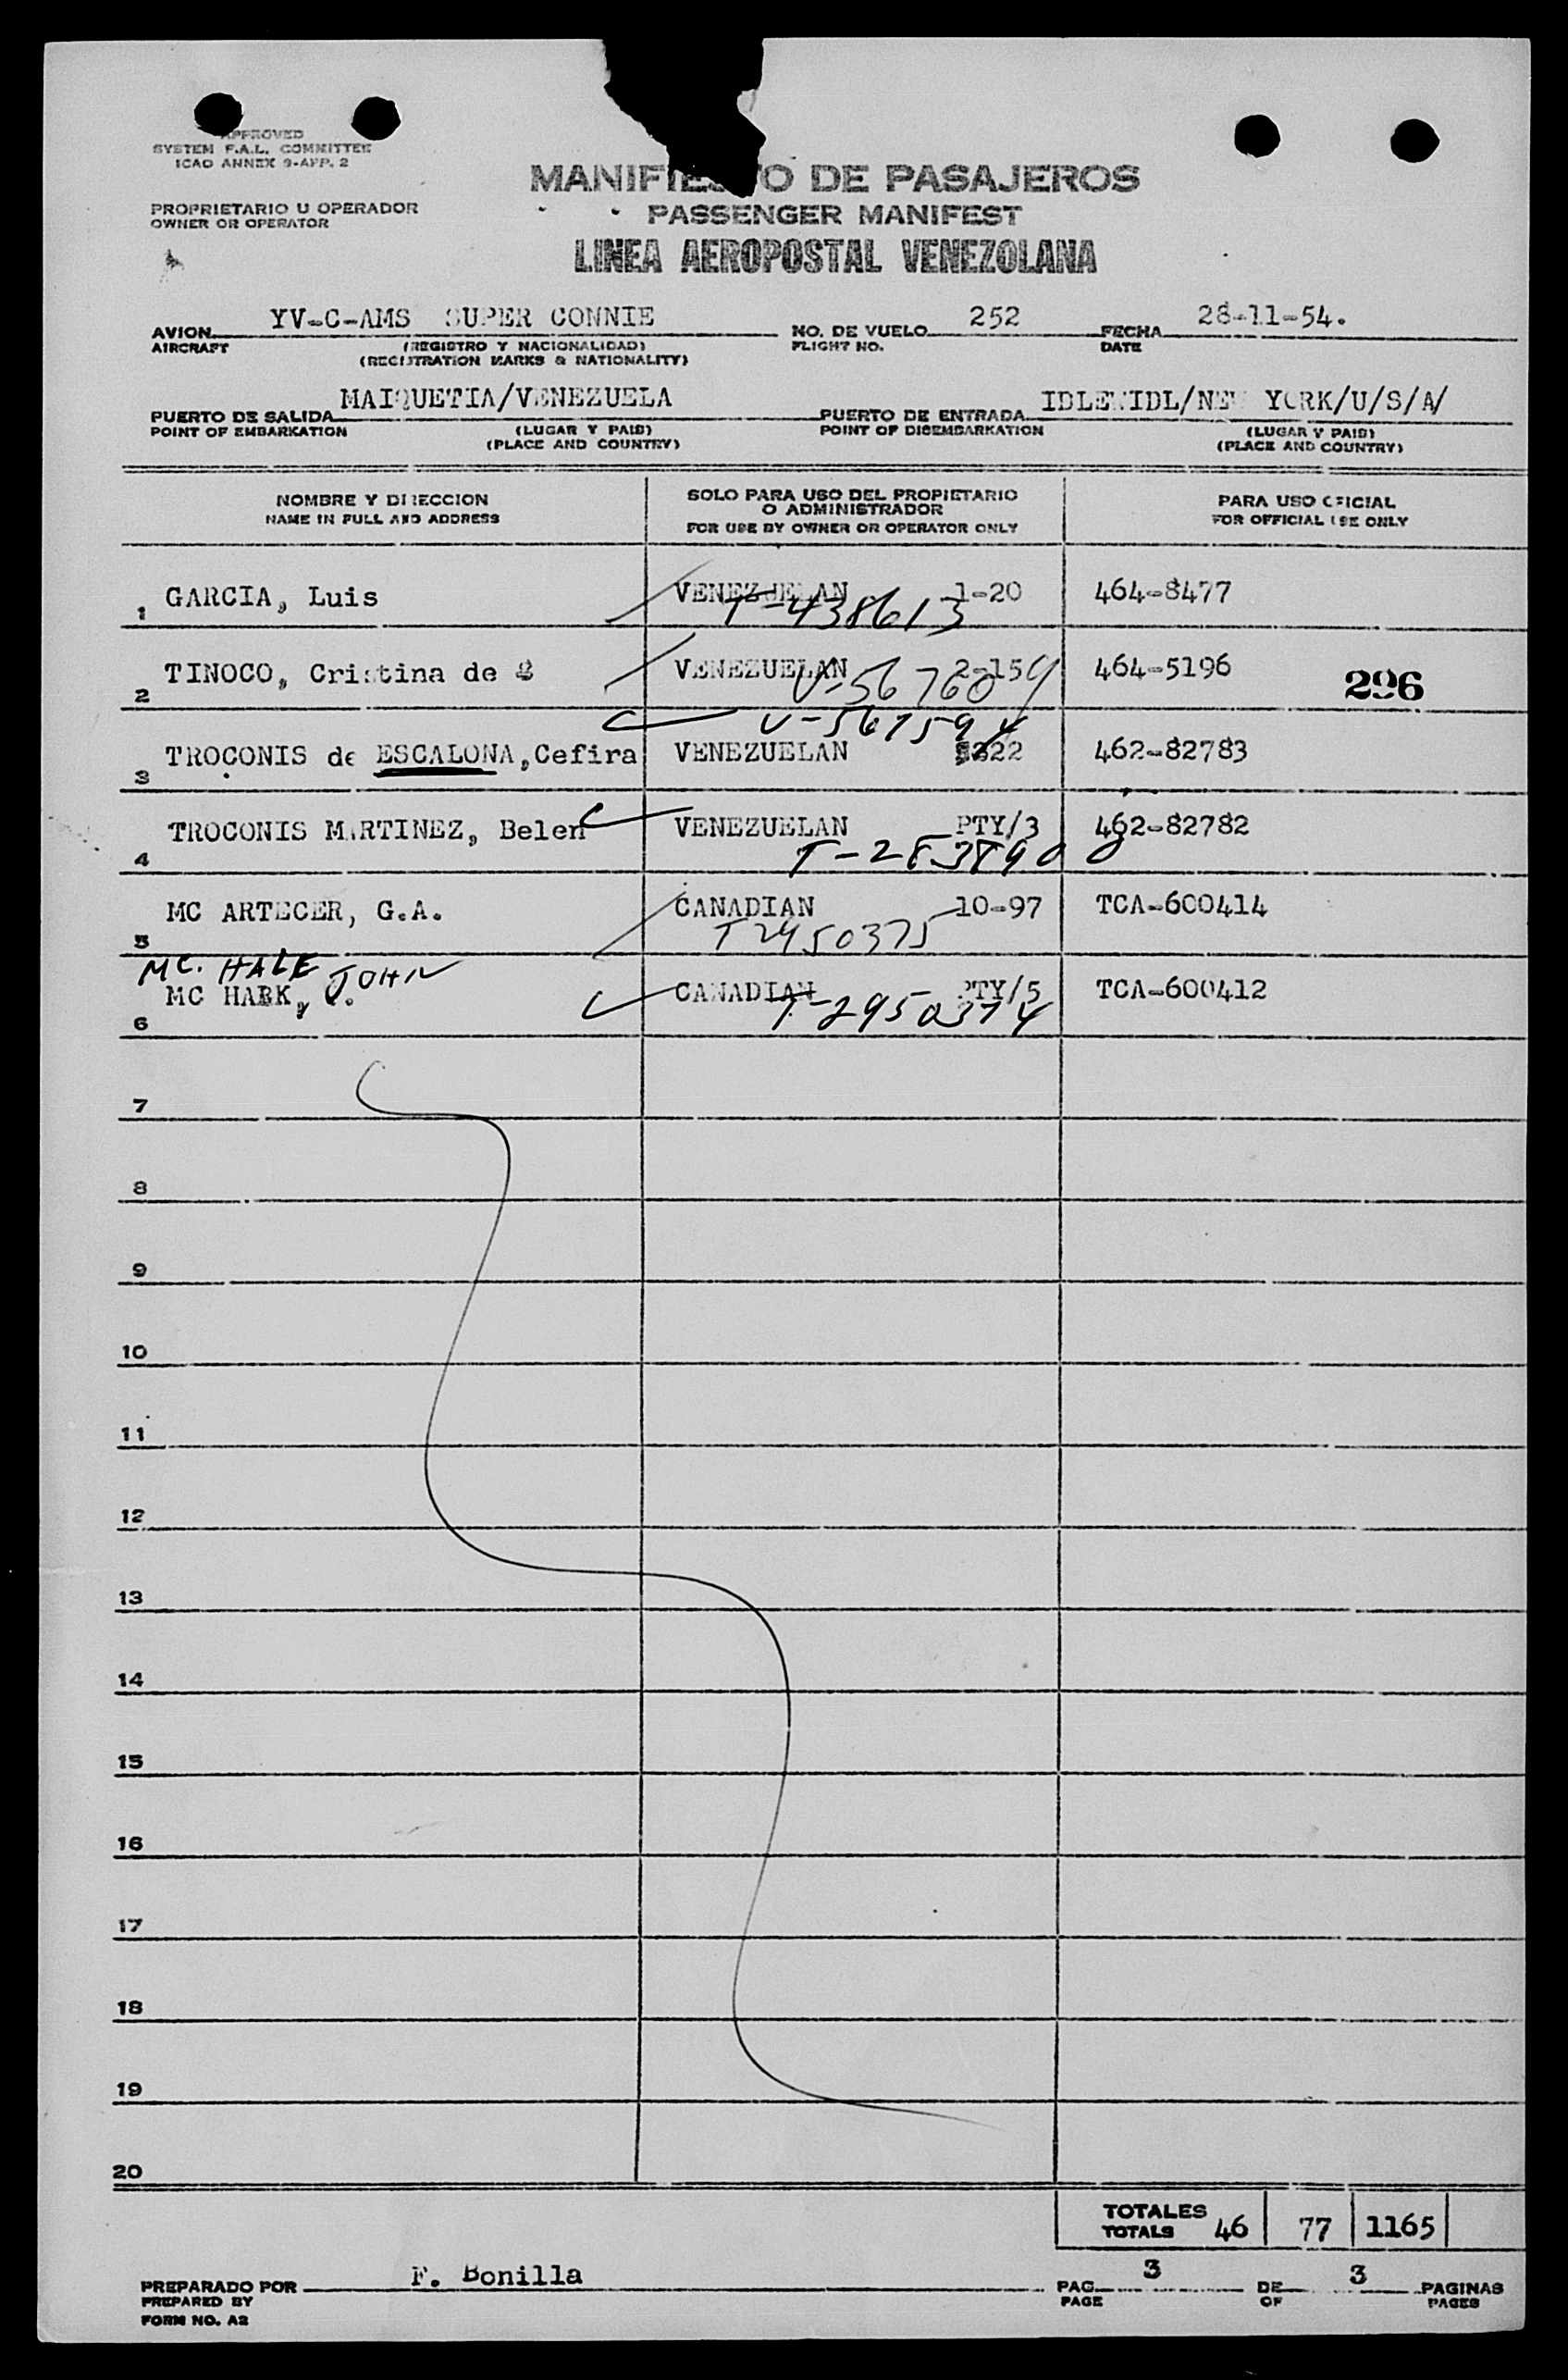 APPROVED
SYSTEM F.A.L. COMMITTEE
ICAO ANNEX 9-APP. 2
MANIFIESTO DE PASAJEROS
PROPRIETARIO U OPERADOR
OWNER OR OPERATOR
PASSENGER MANIFEST
LINEA AEROPOSTAL VENEZOLANA
AVION YV-C-AMS SUPER CONNIE NO. DE VUELO 252 FECHA 28-11-54.
AIRCRAFT (REGISTRO Y NACIONALIDAD) FLIGHT NO. DATE
(REGISTRATION MARKS & NATIONALITY)
PUERTO DE SALIDA MAIQUETIA/VENEZUELA PUERTO DE ENTRADA IDLEWIDL/NEW YORK/U/S/A/
POINT OF EMBARKATION (LUGAR Y PAIS) POINT OF DISEMBARKATION (LUGAR Y PAIS)
(PLACE AND COUNTRY) (PLACE AND COUNTRY)
NOMBRE Y DIRECCION SOLO PARA USO DEL PROPIETARIO PARA USO OFICIAL
O ADMINISTRADOR
NAME IN FULL AND ADDRESS FOR USE BY OWNER OR OPERATOR ONLY FOR OFFICIAL USE ONLY
1 GARCIA, Luis VENEZUELAN 1-20 464-8477
T-438613
2 TINOCO, Cristina de VENEZUELAN 2-15 464-5196
V-567609
296
V-567594
3 TROCONIS de ESCALONA, Cefira VENEZUELAN 462-82783
4 TROCONIS MARTINEZ, Belen VENEZUELAN PTY/3 462-82782
T-2838900
5 MC ARTECER, G.A. CANADIAN 10-97 TCA-600414
T2950375
MC. HALE JOHN
6 MC HABK, J. CANADIAN PTY/5 TCA-600412
T-2950374
7
8
9
10
11
12
13
14
15
16
17
18
19
20
TOTALES
TOTALS 46 77 1165
PREPARADO POR F. Bonilla PAG. 3 DE 3 PAGINAS
PREPARED BY PAGE OF PAGES
FORM NO. A2